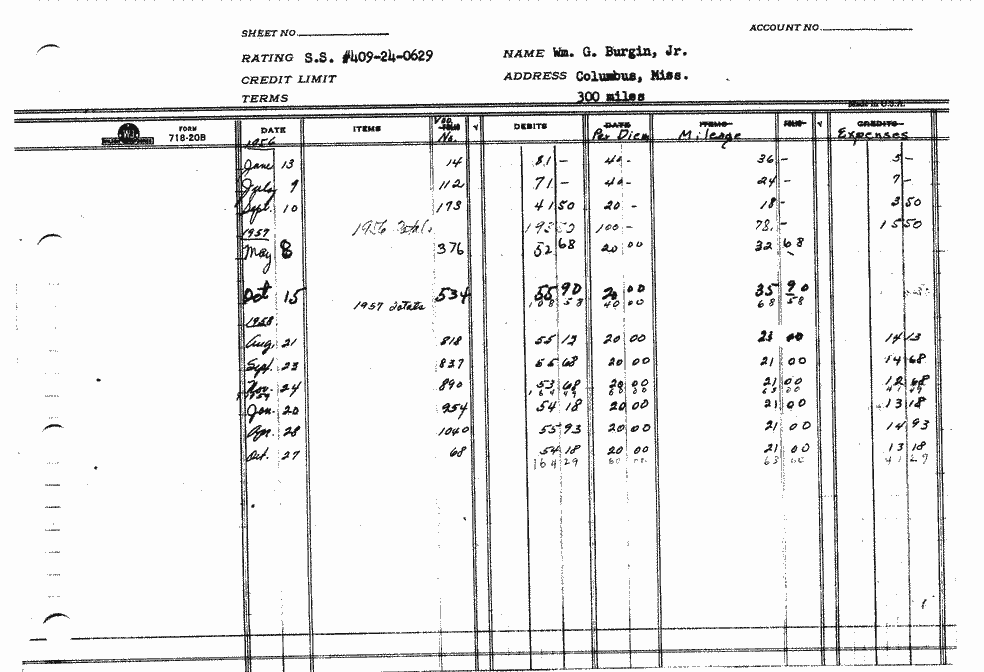 SHEET NO.
ACCOUNT NO.
RATING S.S. #409-24-0629 NAME Wm. G. Burgin, Jr.
CREDIT LIMIT ADDRESS Columbus, Miss.
TERMS 300 miles
FORM 718-20B DATE ITEMS Vou. No. √ DEBITS DATE Per Diem ITEMS Mileage √ CREDITS Expenses
1956
June 13 14 81 - 40 - 36 - 5 -
July 9 112 71 - 40 - 24 - 7 -
Sept. 10 173 41 50 20 - 18 - 3 50
1956 totals 193 50 100 - 78. - 15 50
1957
May 8 376 52 68 20 00 32 68
Oct 15 534 55 90 20 00 35 90
1957 totals 108 58 40 00 68 58
1958
Aug. 21 818 55 13 20 00 21 00 14 13
Sept. 23 837 55 68 20 00 21 00 14 68
Nov. 24 890 53 68 20 00 21 00 12 68
164 49 60 00 63 00 41 49
1959
Jan. 20 954 54 18 20 00 21 00 13 18
Apr. 28 1040 55 93 20 00 21 00 14 93
Oct. 27 68 54 18 20 00 21 00 13 18
164 29 60 00 63 00 41 29